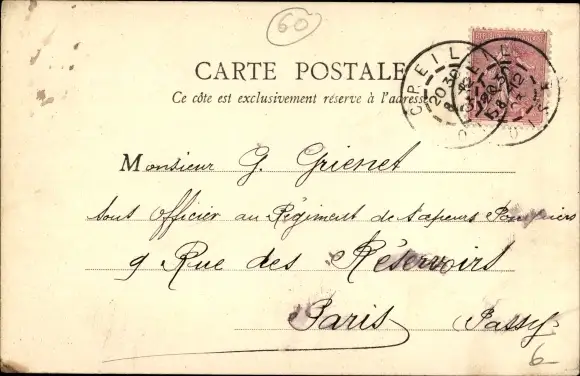 60
CARTE POSTALE
Ce côté est exclusivement réservé à l'adresse
CREIL
OISE
Monsieur G. Grienet
sous Officier au Régiment de Sapeurs Pompiers
9 Rue des Réservoirs
Paris Passy
6